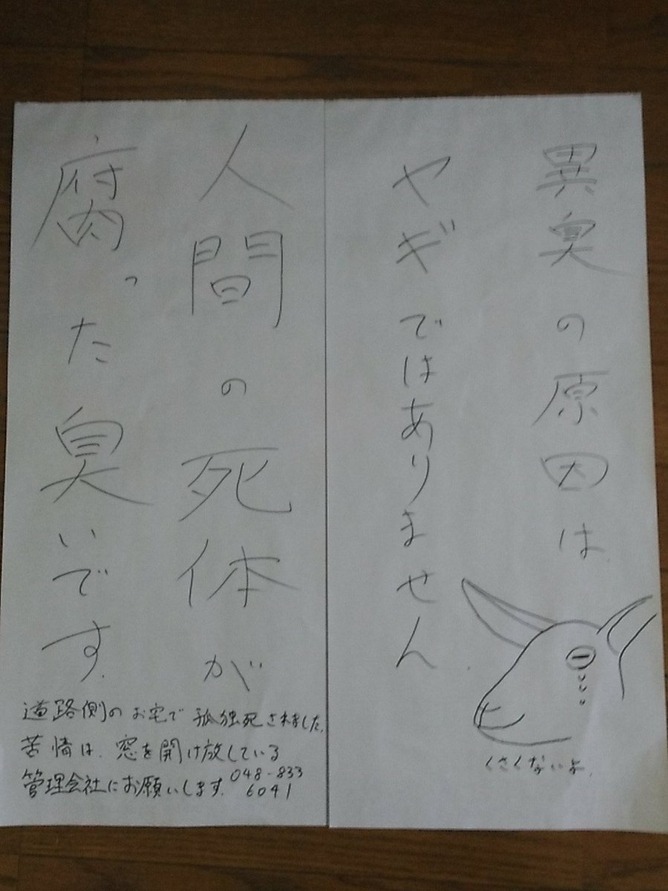 異臭の原因は
ヤギではありません
くさくないよ.
人間の死体が
腐った臭いです.
道路側のお宅で孤独死されました.
苦情は、窓を開け放している
管理会社にお願いします. 048-833
6041